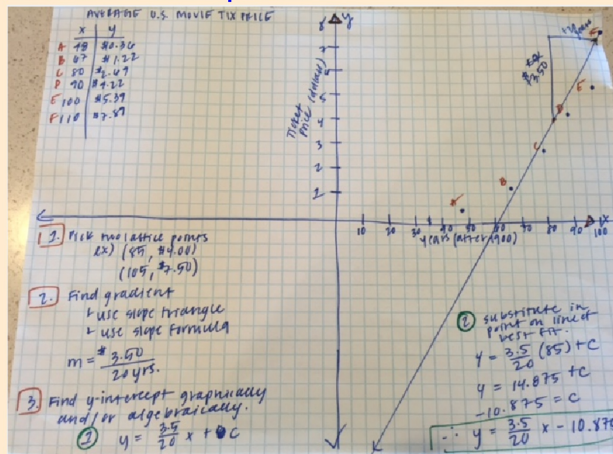 AVERAGE U.S. MOVIE TIX PRICE
x y
A 48 $0.36
B 67 $1.22
C 80 $2.69
D 90 $4.22
E 100 $5.39
F 110 $7.89
y
Ticket
Price (dollars)
7
6
5
4
3
2
1
$3.50
A
B
C
D
E
F
10 20 30 40 50 60 70 80 90 100
x
years (after 1900)
1. Pick two lattice points
ex) (85, $4.00)
(105, $7.50)
2. Find gradient
use slope triangle
use slope formula
m = $3.50
20 yrs.
3. Find y-intercept graphically
and/or algebraically.
① y = 3.5/20 x + c
② substitute in
point on line of
best fit.
y = 3.5/20 (85) + c
y = 14.875 + c
-10.875 = c
∴ y = 3.5/20 x - 10.875